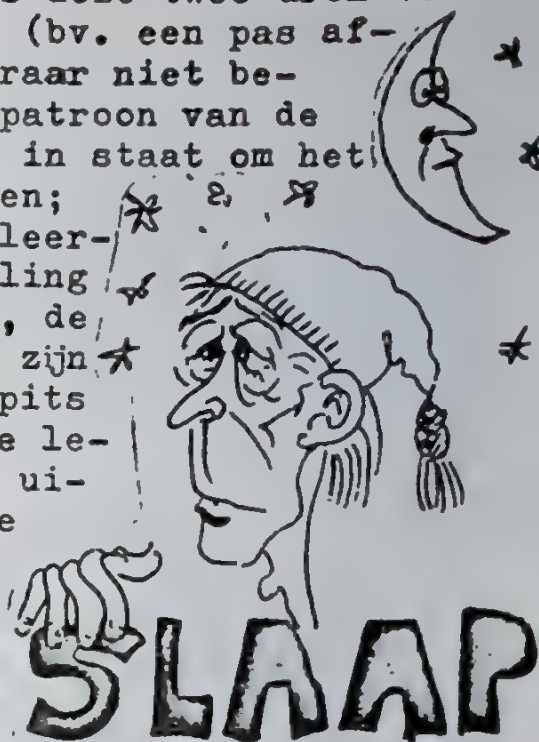 (bv. een pas af-
raar niet be-
patroon van de
in staat om het
en;
leer-
ling
, de
zijn
pits
e le-
ui-
e
SLAAP